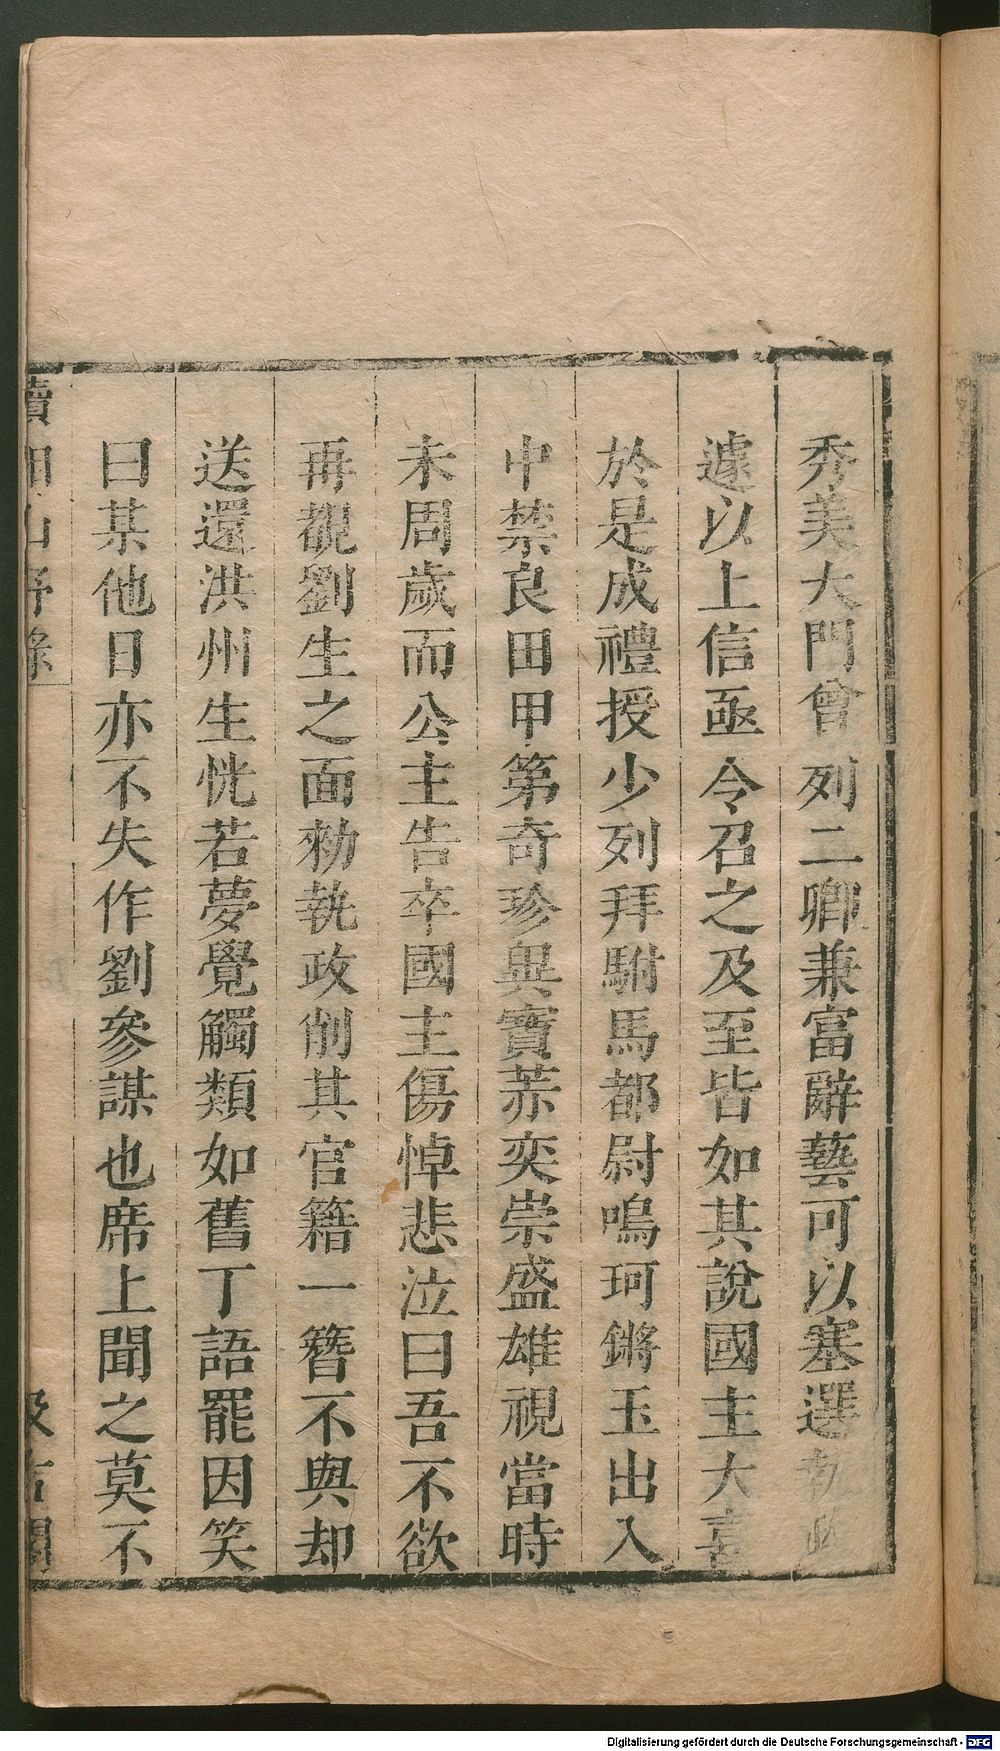 秀美大門曾列二卿兼富辭藝可以塞選執政
遽以上信亟令召之及至皆如其說國主大喜
於是成禮授少列拜駙馬都尉鳴珂鏘玉出入
中禁良田甲第奇珍異寶萃奕崇盛雄視當時
未周歲而公主告卒國主傷悼悲泣曰吾不欲
再覩劉生之面勑執政削其官籍一簪不與却
送還洪州生恍若夢覺觸類如舊丁語罷因笑
曰某他日亦不失作劉參謀也席上聞之莫不
續湘山野錄
汲古閣
Digitalisierung gefördert durch die Deutsche Forschungsgemeinschaft - DFG